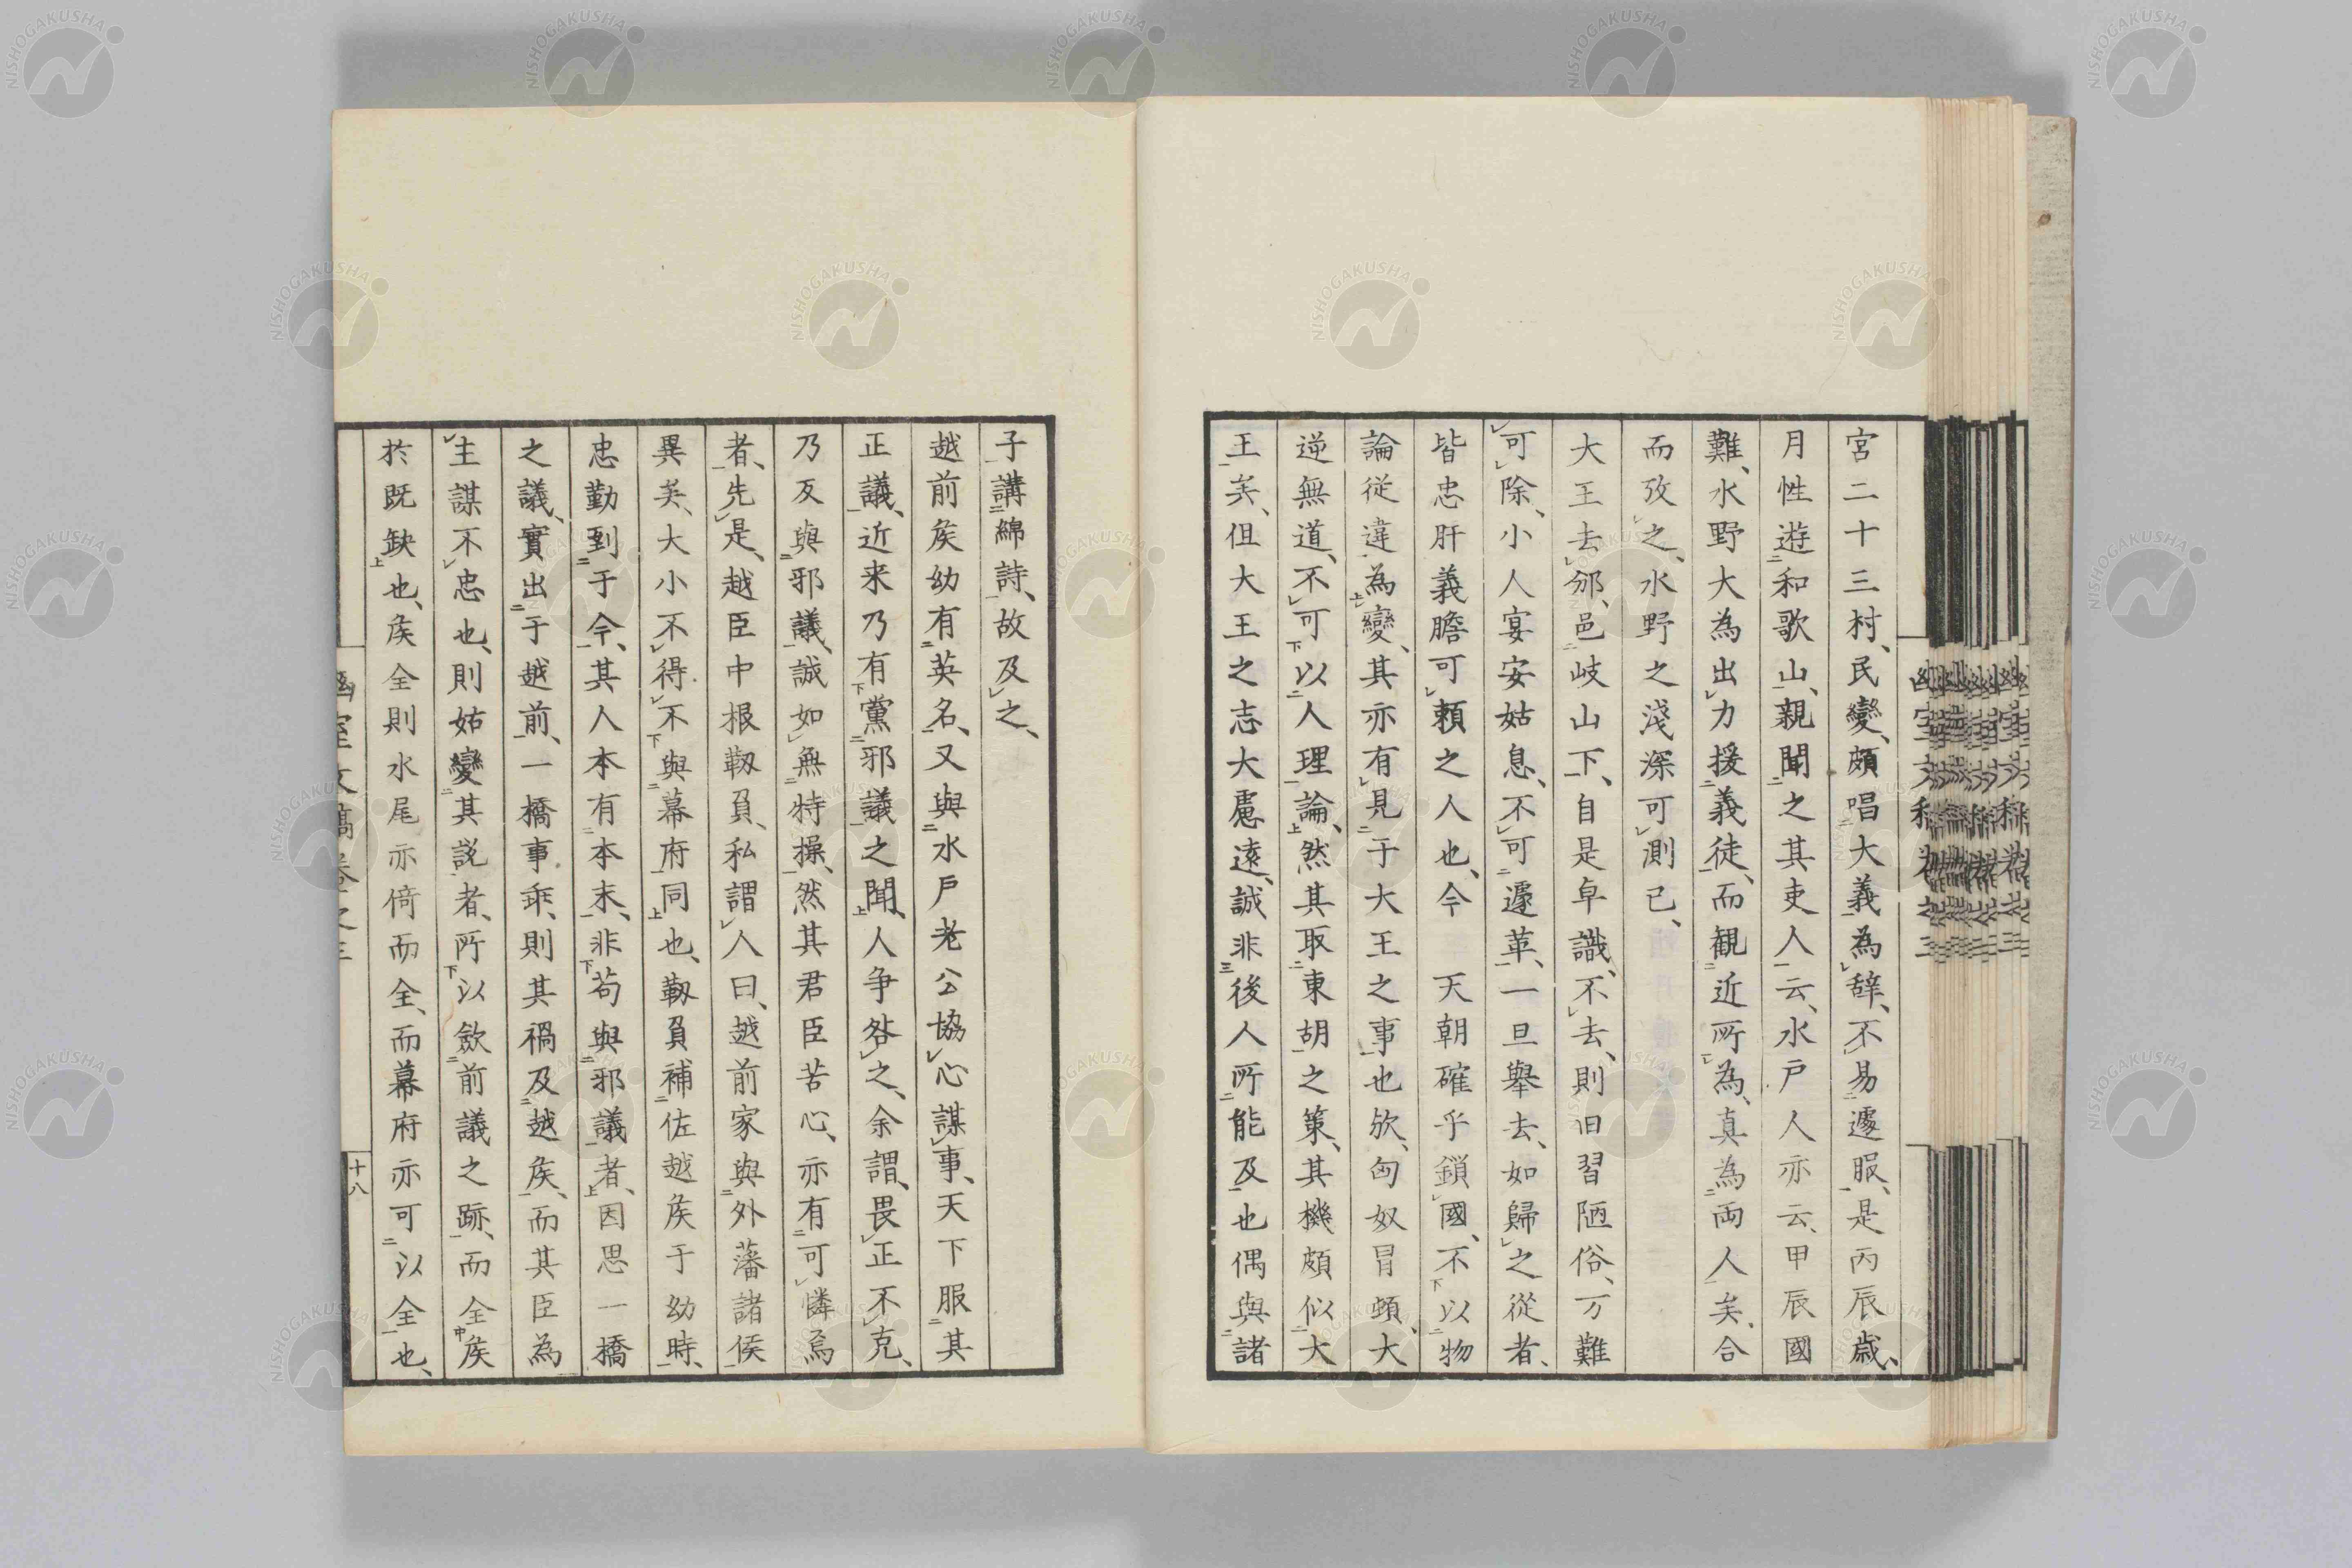 宮二十三村、民變、頗唱大義為辞、不易遽服、是丙辰歳、
月性遊和歌山、親聞之其吏人云、水戸人亦云、甲辰國
難、水野大為出力援義徒、而観近所為、真為両人矣、合
而攷之、水野之淺深可測已、
大王去邠、邑岐山下、自是卓識、不去、則旧習陋俗、万難
可除、小人宴安姑息、不可遽革、一旦舉去、如歸之從者、
皆忠肝義膽可頼之人也、今 天朝確乎鎖國、不以物
論從違為變、其亦有見于大王之事也欤、匈奴冒頓、大
逆無道、不可以人理論、然其取東胡之策、其機頗似大
王矣、但大王之志大慮遠、誠非後人所能及也偶與諸
子講綿詩、故及之、
越前矦幼有英名、又與水戸老公協心謀事、天下服其
正議、近来乃有黨邪議之聞、人争咎之、余謂、畏正不克、
乃反與邪議、誠如無特操、然其君臣苦心、亦有可憐焉
者、先是、越臣中根靱負、私謂人曰、越前家與外藩諸侯
異矣、大小不得不與幕府同也、靱負補佐越矦于幼時、
忠勤到于今、其人本有本末、非苟與邪議者、因思一橋
之議、實出于越前、一橋事乖、則其禍及越矦、而其臣為
主謀不忠也、則姑變其説者、所以歛前議之跡、而全矦
於既缺也、矦全則水尾亦倚而全、而幕府亦可以全也、
幽室文稿巻之三
十八